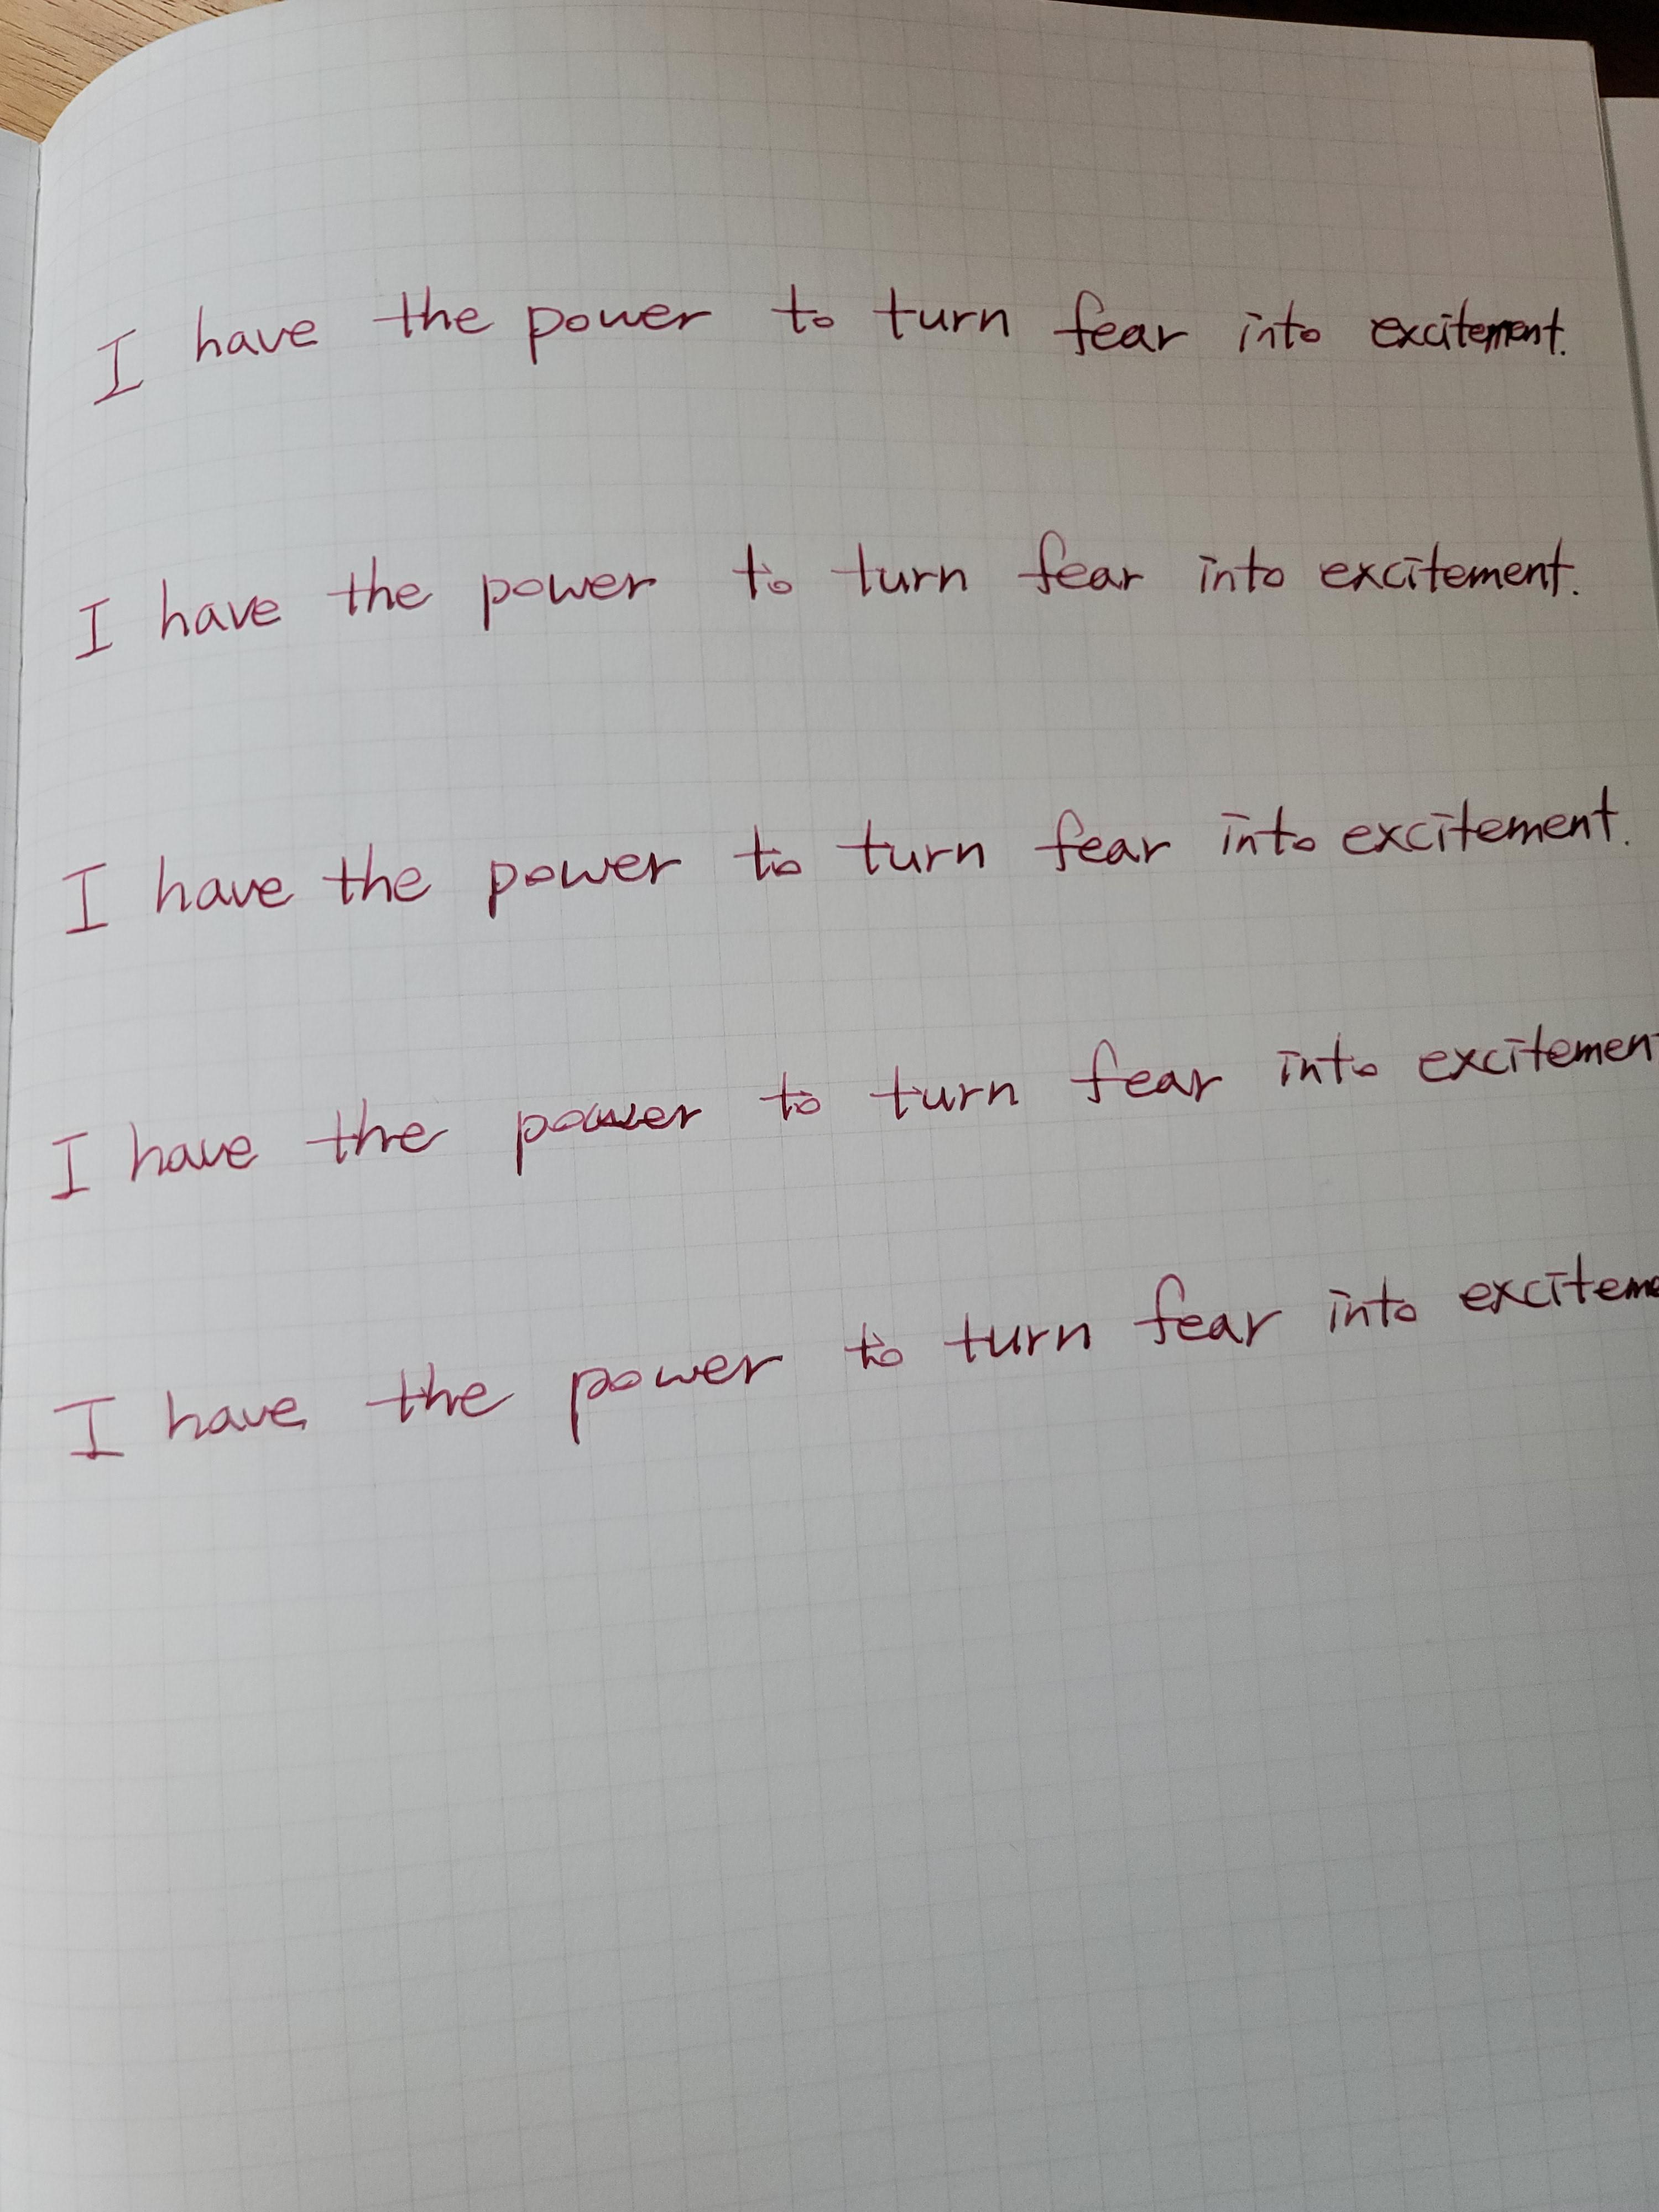 I have the power to turn fear into excitement.
I have the power to turn fear into excitement.
I have the power to turn fear into excitement.
I have the power to turn fear into excitemen
I have the power to turn fear into exciteme